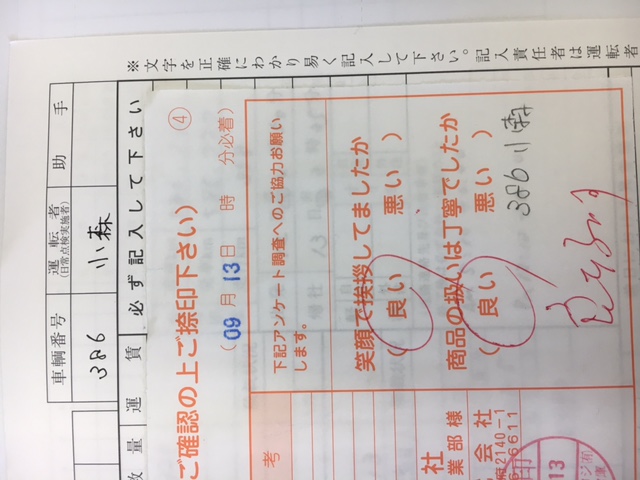 ※文字を正確にわかり易く記入して下さい。記入責任者は運転者
車輌番号
運転者
(日常点検実施者)
助手
386
小森
数量
運賃
必ず記入して下さい
④
ご確認の上ご捺印下さい)
(09月13日 時 分必着)
下記アンケート調査へのご協力お願い
します。
笑顔で挨拶してましたか
(良い 、 悪い)
商品の扱いは丁寧でしたか
(良い 悪い)
386 小森
考
社
業部 様
会社
府2140-1
6611
印
13